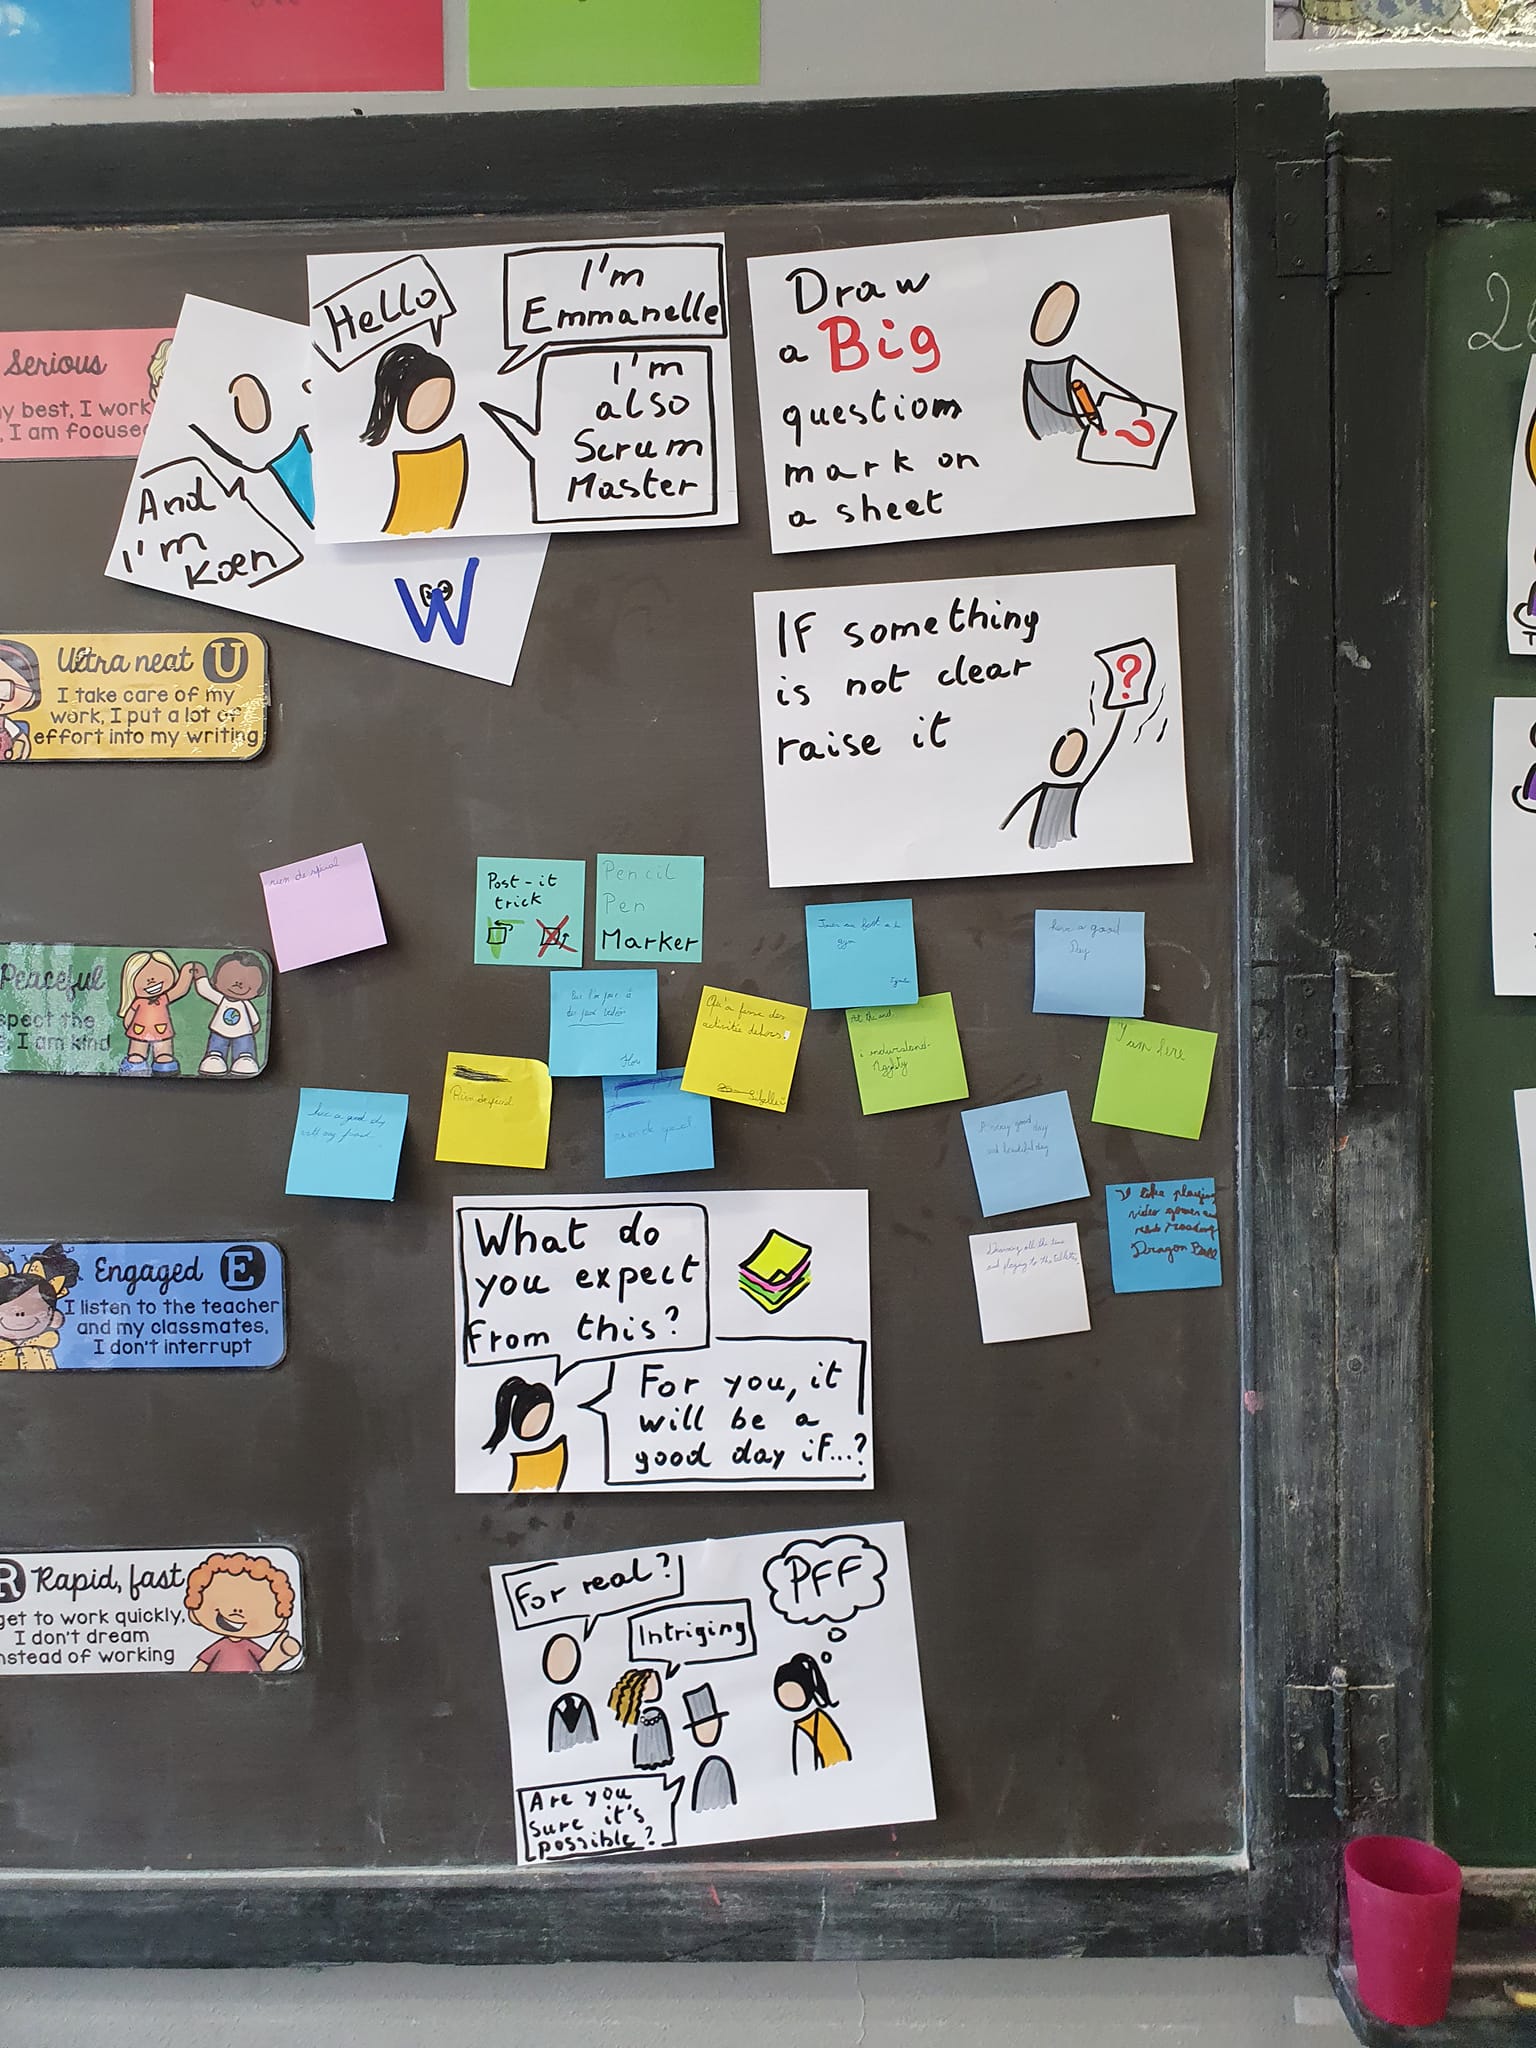 Serious
my best, I work
, I am focused
Hello
I'm
Emmanelle
I'm
also
Scrum
Master
And
I'm
Koen
W
Draw
a Big
question
mark on
a sheet
IF something
is not clear
raise it
Ultra neat U
I take care of my
work, I put a lot of
effort into my writing
rien de spécial
Post-it
trick
Pencil
Pen
Marker
gym
have a good
Day
Peaceful
spect the
, I am kind
Qu'a fasse des
activitée dehors.
Sibelle
At the end.
i understand
I am here
have a good day
with my friend
Rien de
rien de
A very good
day
and beautiful day
I like playing
video games
reading
Dragon Ball
Drawing all the time
and playing to the
What do
you expect
from this?
For you, it
will be a
good day if...?
Engaged E
I listen to the teacher
and my classmates,
I don't interrupt
For real?
Intriging
PFF
Are you
sure it's
possible?
R Rapid, fast
get to work quickly,
I don't dream
instead of working